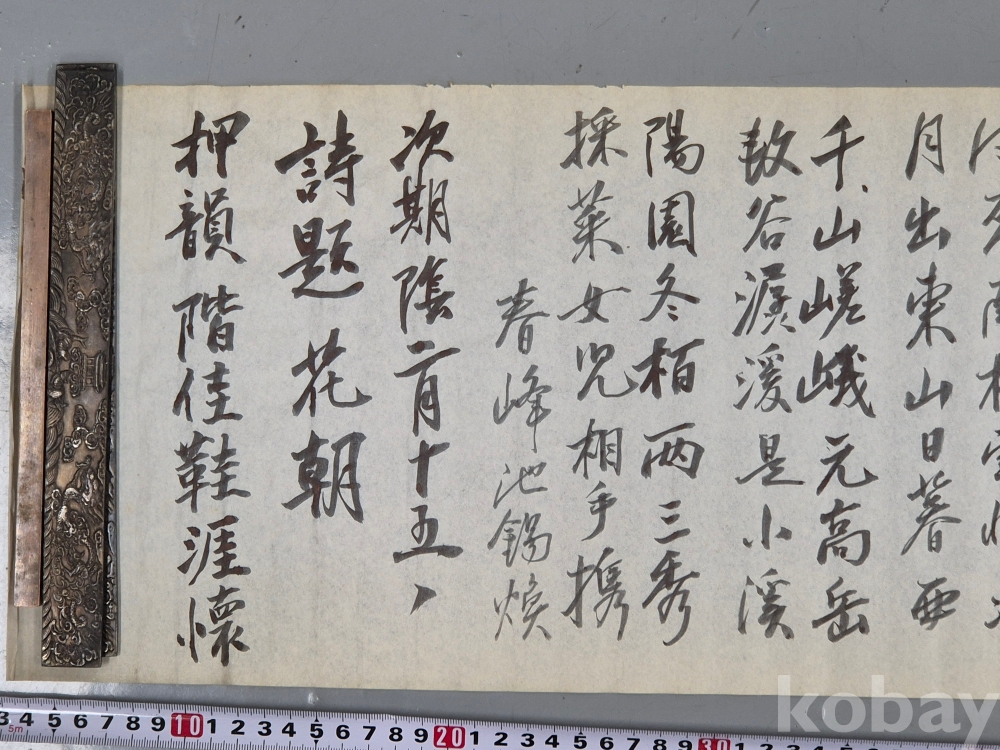 月出東山日暮西
千山嵯峨元高岳
数谷潺湲是小溪
陽園冬栢两三秀
採菜女兒相手携
春峰池錫煥
次期陰二月十五丶
詩題花朝
押韻階佳鞋涯懷
3 4 5 6 7 8 9 10 1 2 3 4 5 6 7 8 9 20 1 2 3 4 5 6 7 8 9 30
5m
kobay